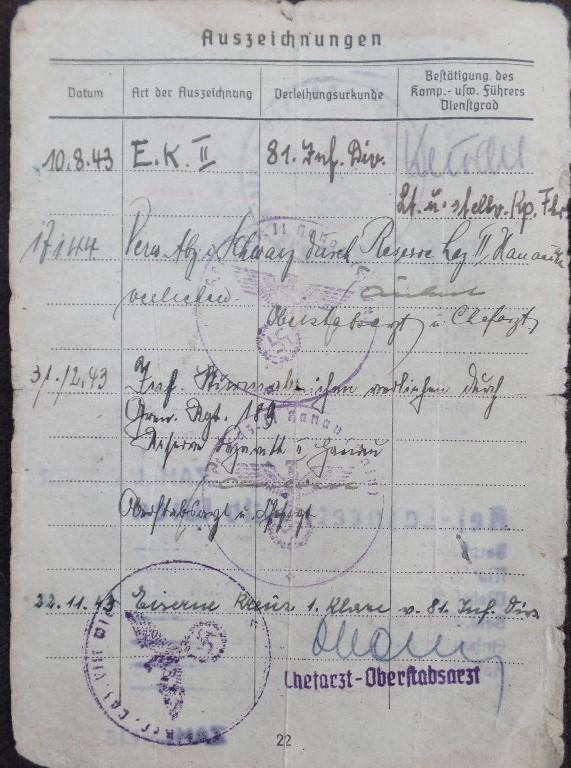 Auszeichnungen
Datum
Art der Auszeichnung
Verleihungsurkunde
Bestätigung des
Komp.- usw. Führers
Dienstgrad
10.8.43 E.K. II 81. Inf. Div.
Lt. u. stellv. Kp. Fhr.
17.1.44 Verw. Abz. Schwarz durch Reserve Laz II, Hanau
verliehen.
Oberstabsarzt u. Chefarzt
31.12.43 Inf. Sturmabzeichen verliehen durch
Gren. Rgt. 189
Reserve Lazarett II Hanau
Oberstabsarzt u. Chefarzt
22.11.43 Eiserne Kreuz 1. Klasse v. 81. Inf. Div.
Chefarzt-Oberstabsarzt
22